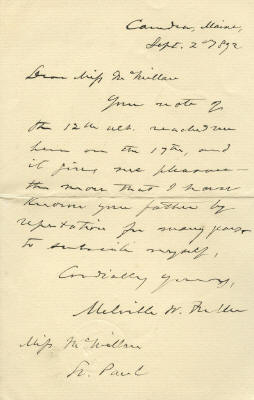 Camden, Maine,
Sept. 2d 1892
Dear Miss McMillan
Your note of
the 12th ult. reached me
here on the 17th, and
it gives me pleasure—
the more that I have
known your father by
reputation for many years
to subscribe myself,
Cordially yours,
Melville W. Fuller
Miss McMillan
St. Paul